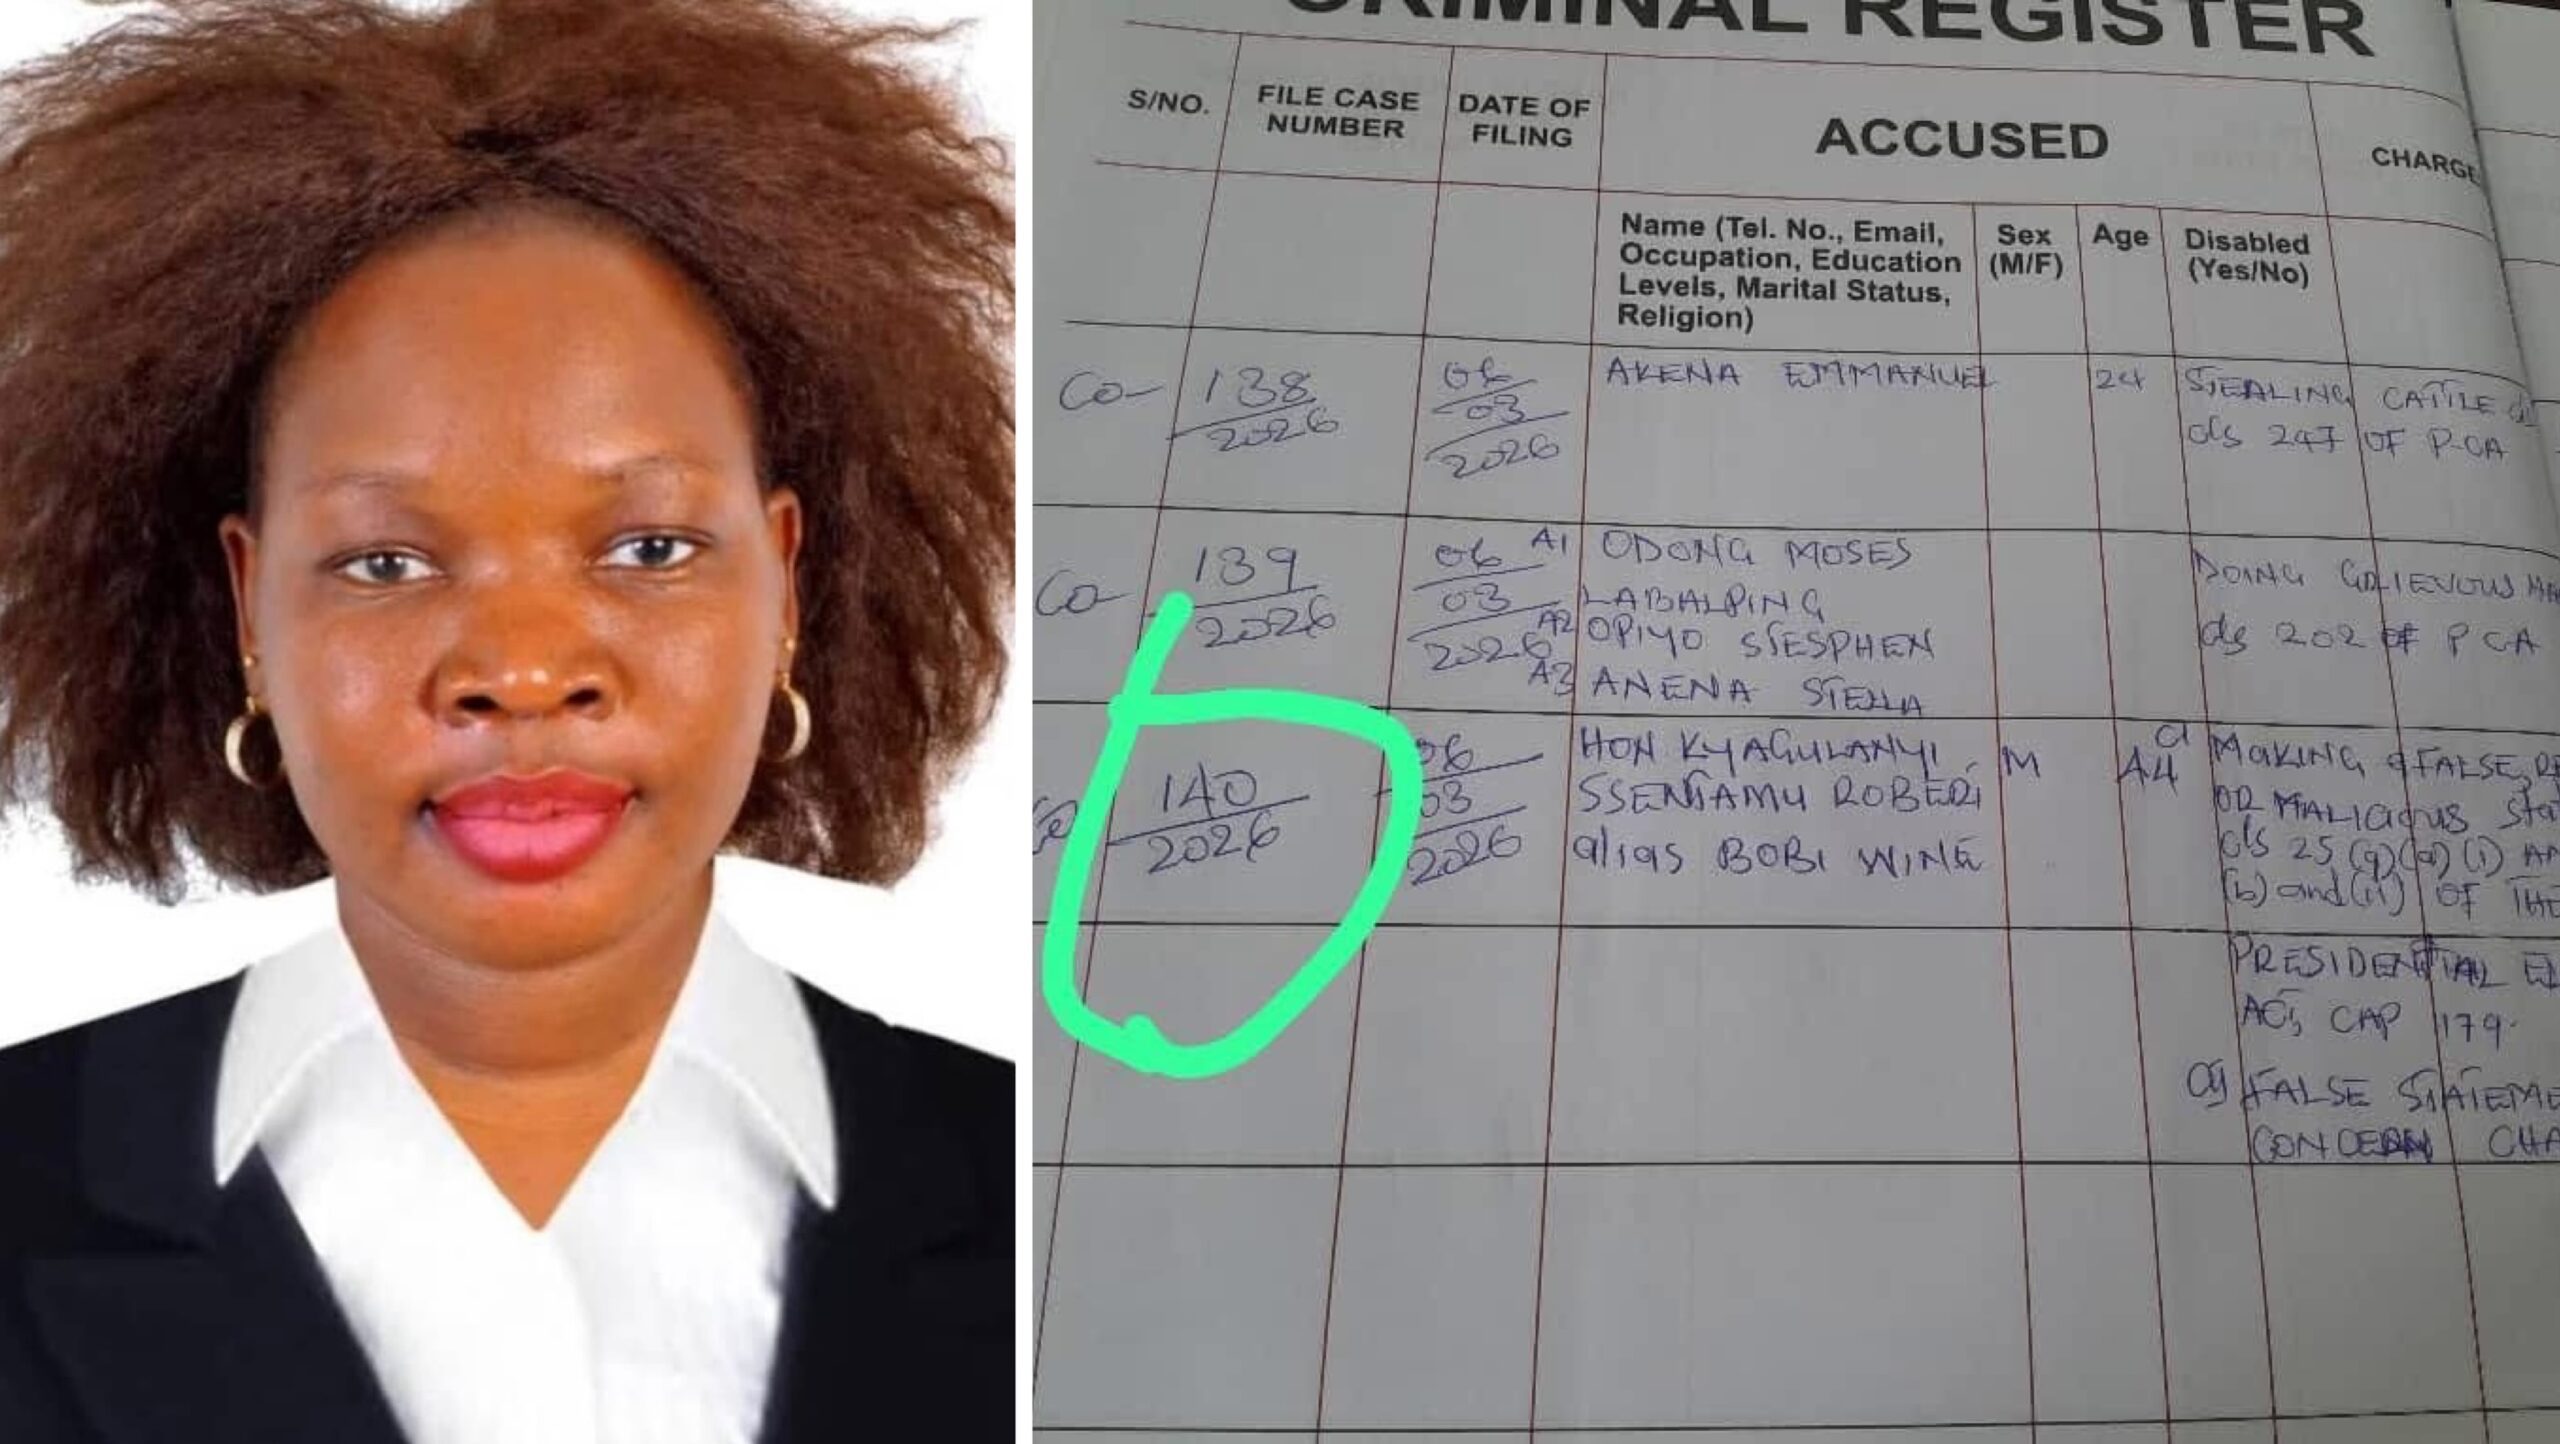 CRIMINAL REGISTER
S/NO.
FILE CASE
NUMBER
DATE OF
FILING
ACCUSED
CHARGE
Name (Tel. No., Email,
Occupation, Education
Levels, Marital Status,
Religion)
Sex
(M/F)
Age
Disabled
(Yes/No)
Co-
138
2026
06
03
2026
AKENA EMMANUEL
24
STEALING CATTLE
c/s 247 OF P-CA
Co-
139
2026
06
03
2026
A1 ODONG MOSES
LABALPING
A2 OPIYO STESPHEN
A3 ANENA STELLA
DOING GRIEVOUS HA
c/s 202 OF PCA
140
2026
06
03
2026
HON KYAGULANYI
SSENTAMU ROBERT
alias BOBI WINE
M
44
MAKING a FALSE,
OR MALICIOUS Stat
c/s 25 (a)(i) AN
(b) and (ii) OF THE
PRESIDENTIAL EL
ACT, CAP 179.
FALSE STATEME
CONCERN CHA